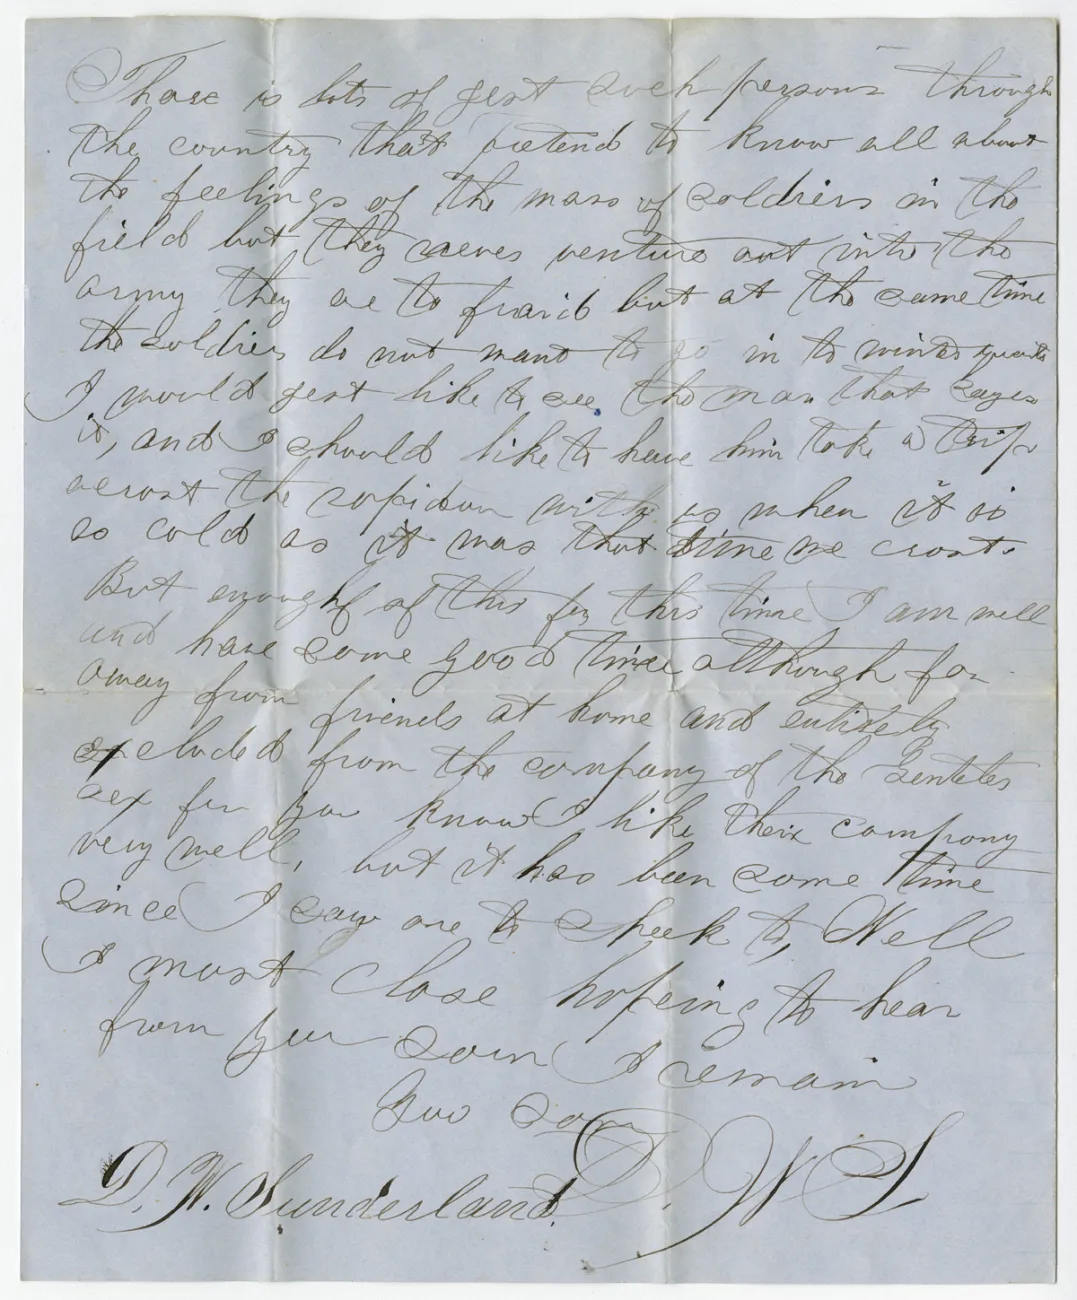 Thare is lots of gest such persons through
the country that pretend to know all about
the feelings of the mass of soldiers in the
field but they never venture out into the
army they are to fraid but at the same time
the soldiers do not want to go in to winter quarts
I would gest like to see the man that sayes
it, and I should like to have him take a trip
acrost the rapidan with us when it is
so cold as it was that time we crost.
But enough of this for this time I am well
and have some good times although far
away from friends at home and entirely
excluded from the company of the Genteles
sex for you know I like their company
very well, but it has been some time
since I saw one to speek to, Well
I must close hopeing to hear
from you soon I remain
D. W. S
D. W. Sunderland.